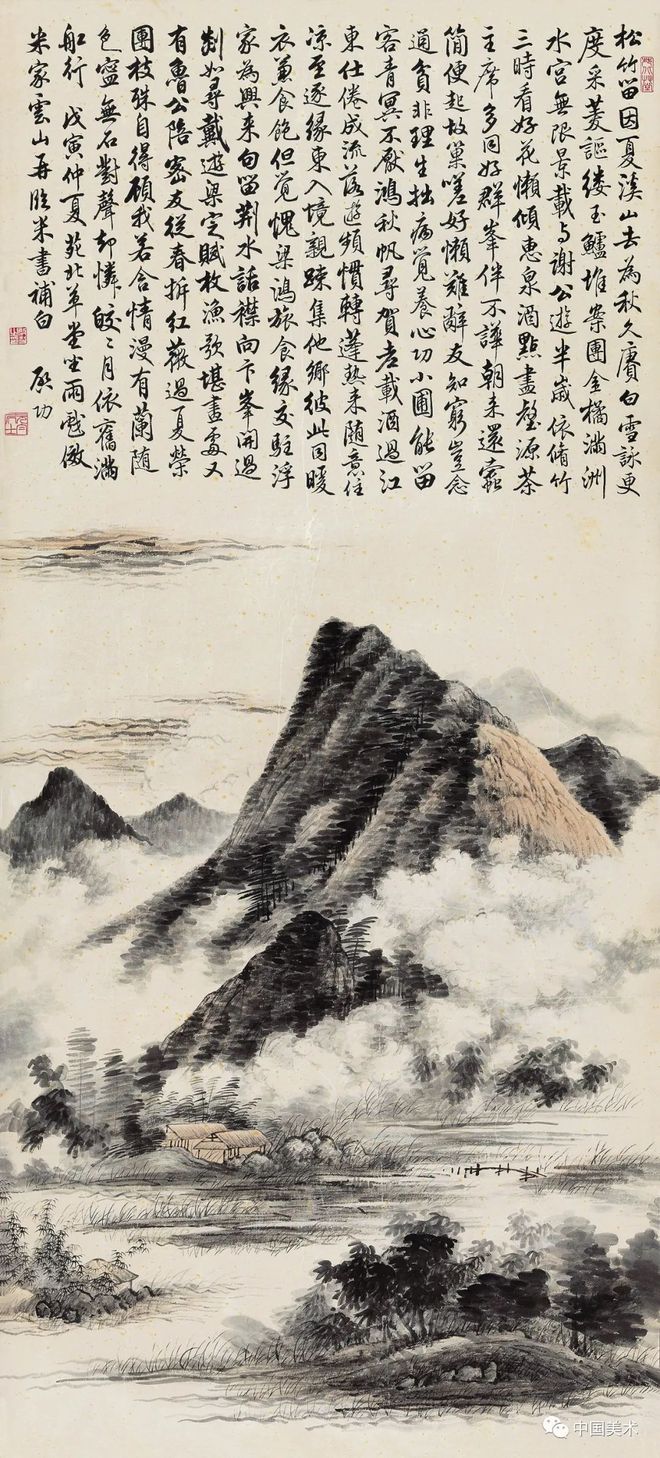 松竹留因夏溪山去為秋久賡白雪詠更
度采菱謳縷玉鱸堆案團金橘滿洲
水宮無限景載与謝公遊半歲依脩竹
三時看好花懶傾惠泉酒點盡壑源茶
主席多同好群峯伴不譁朝来還蠹
簡便起故巢嗟好懶難辭友知窮豈念
通貧非理生拙病覺養心功小圃能留
客青冥不厭鴻秋帆尋賀老載酒過江
東仕倦成流落遊頻慣轉蓬熱来隨意住
凉至逐緣東入境親踈集他鄉彼此同暖
衣兼食飽但覺愧梁鴻旅食緣交駐浮
家為興来句留荆水話襟向卞峯開過
剡如尋戴遊梁定賦枚漁歌堪畫處又
有魯公陪密友從春拆紅薇過夏榮
團枝殊自得顧我若含情漫有蘭隨
色寧無石對聲却憐皎々月依舊滿
舩行 戊寅仲夏苑北草堂坐雨戲倣
米家雲山再臨米書補白 啟功
中国美术